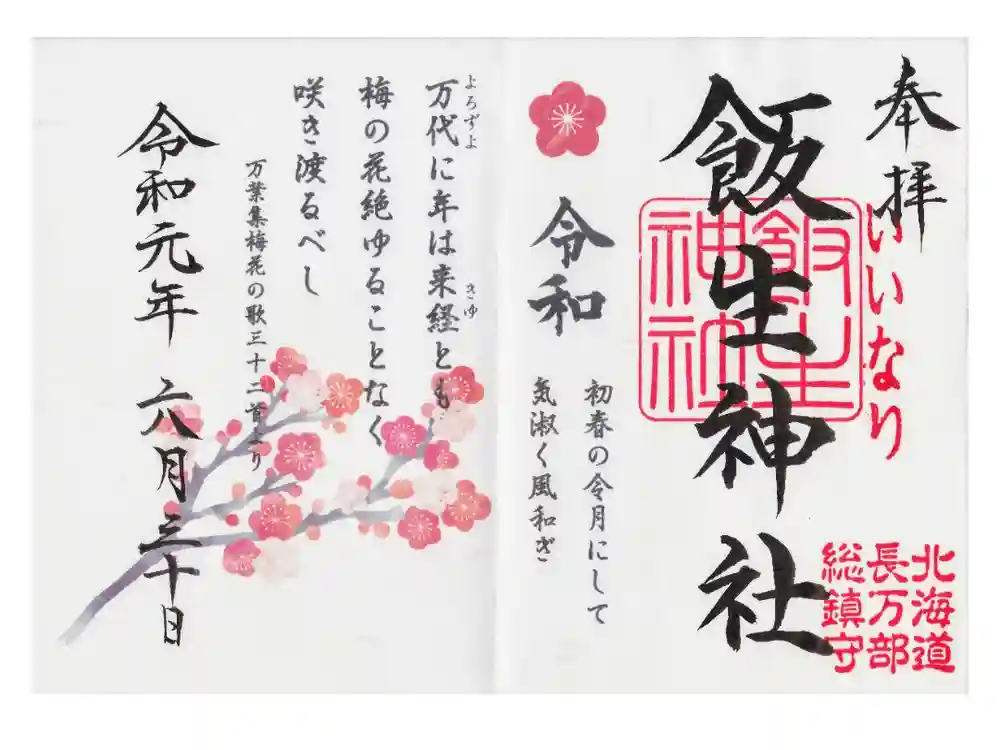 奉拝
いいなり
飯生神社
飯生
神社
北海道
長万部
総鎮守
令和
初春の令月にして
気淑く風和ぎ
よろずよ
きゆ
万代に年は来経とも
梅の花絶ゆることなく
咲き渡るべし
万葉集梅花の歌三十二首より
令和元年 六月三十日